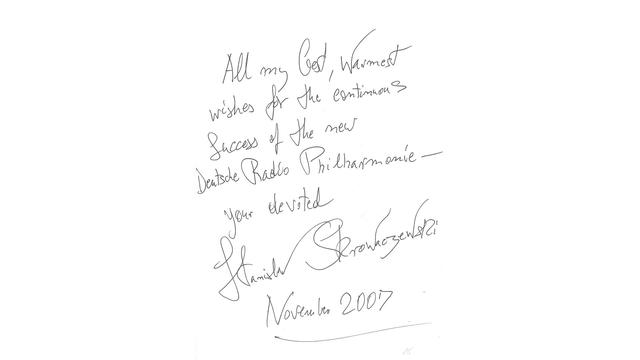 All my best, warmest
wishes for the continuous
success of the new
Deutsche Radio Philharmonie —
your devoted
Stanislaw Skrowaczewski
November 2007